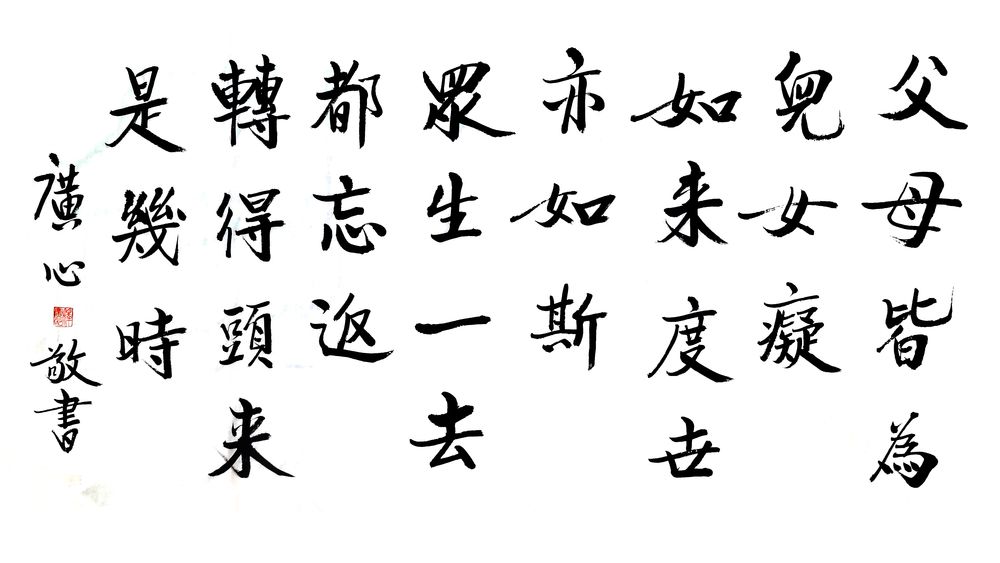 父母皆為
兒女癡
如来度世
亦如斯
眾生一去
都忘返
轉得頭来
是幾時
廣心
敬書